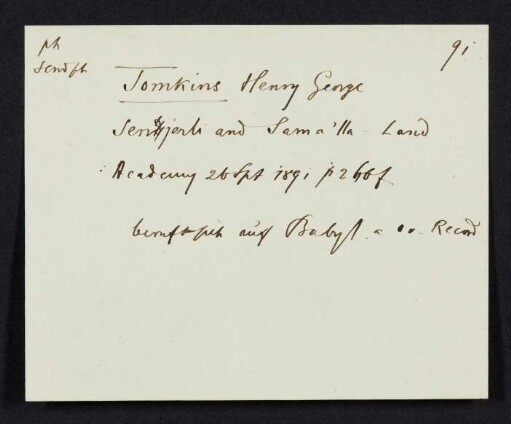 ph
Sendsch
91
Tomkins Henry George
Sendjerli and Sama'lla - Land
Academy 26 Spt 1891 p 266f
beruft sich auf Babyl. a oo. Record